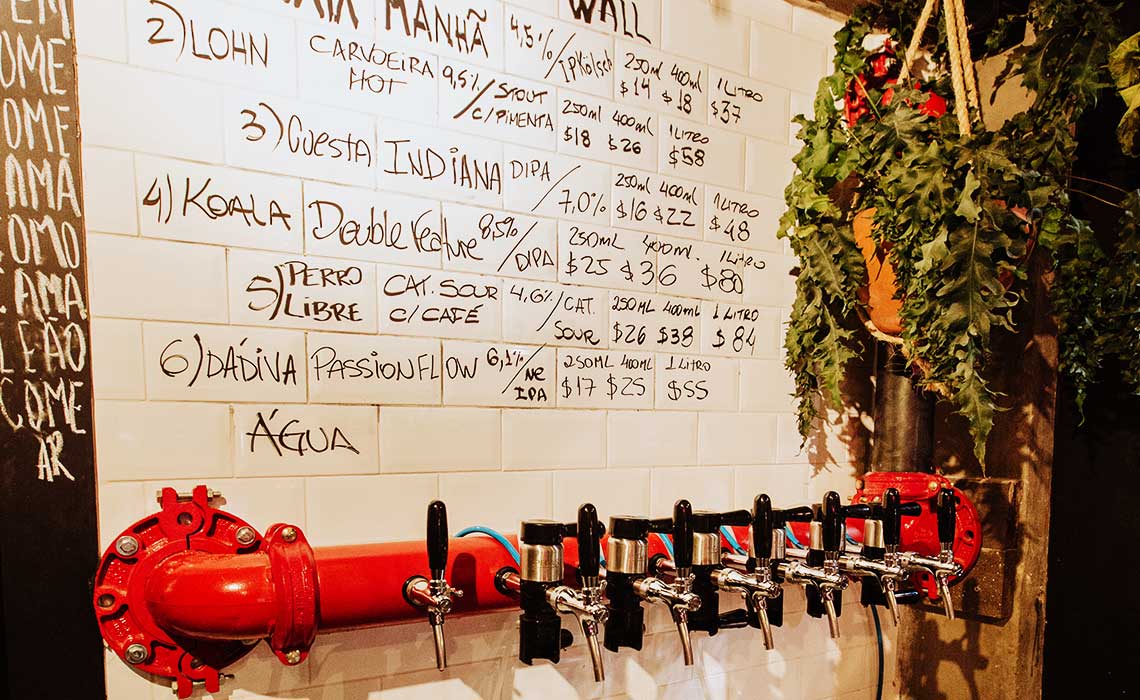 MANHÃ WALL 4,5%/ 250ml 400ml 1 LITRO
$14 $18 $37
2) LOHN CARVOEIRA HOT 9,5%/ STOUT C/PIMENTA 250ml 400ml 1 LITRO
$18 $26 $58
3) Cuesta INDIANA DIPA/ 7,0% 250ml 400ml 1 LITRO
$16 $22 $48
4) KOALA Double Feature 8,5%/ DIPA 250ML 400ML 1 LITRO
$25 $36 $80
5) PERRO LIBRE CAT. SOUR C/ CAFÉ 4,6%/ CAT. SOUR 250ML 400ML 1 LITRO
$26 $38 $84
6) DÁDIVA PASSIONFLOW 6,1%/ NE IPA 250ML 400ML 1 LITRO
$17 $25 $55
ÁGUA
OME
AMA
OMO
AMA
LEÃO
COME
AR